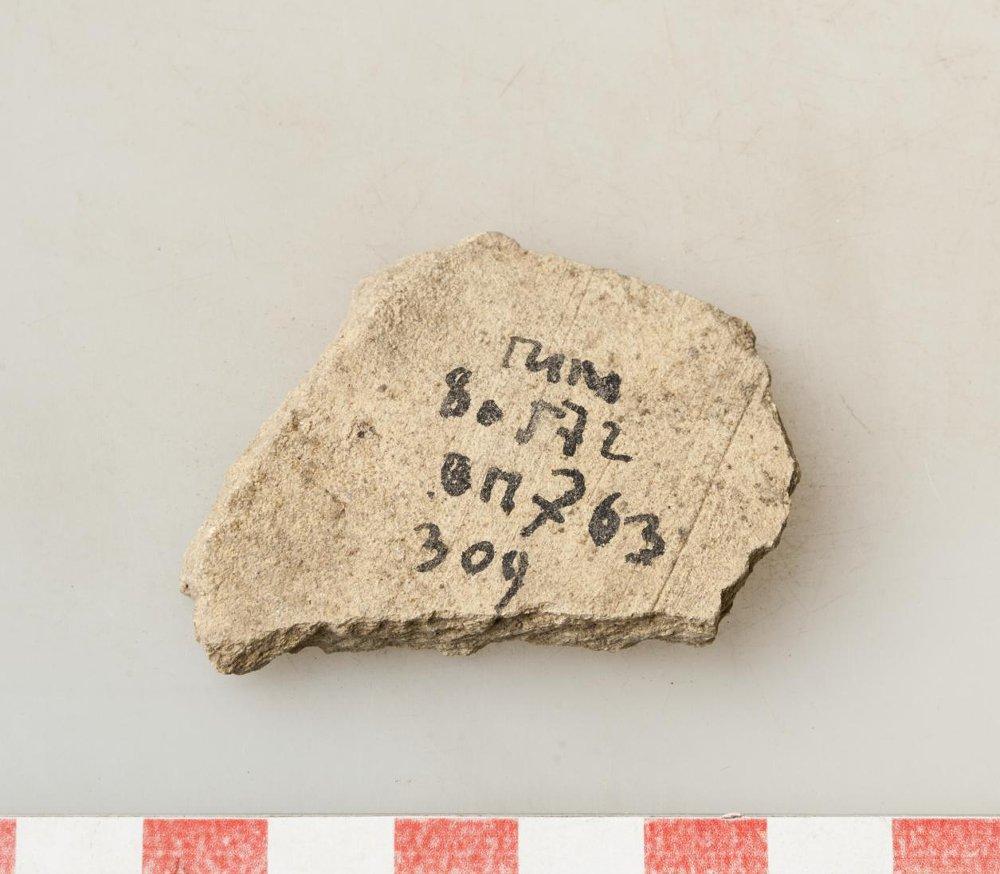 ГИМ
80572
ВП X 63
309